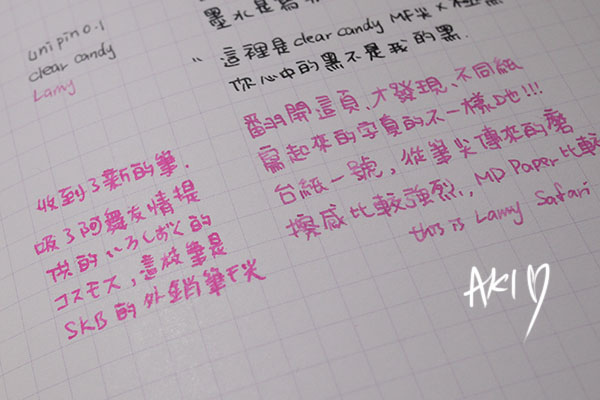 墨水是寫
uni pin 0.1
clear candy
Lamy
"這裡是clear candy MF尖×極黑
你心中的黑不是我的黑.
翻開這頁,才發現、不同紙
寫起來的字真的不一樣地!!!
台紙一號,從筆尖傳來的磨
擦感比較強烈,MD Paper比較
this is Lamy Safari
收到了新的筆.
吸了阿舞友情提
供的いろしずく的
コスモス,這枝筆是
SKB的外銷筆F尖
AKI